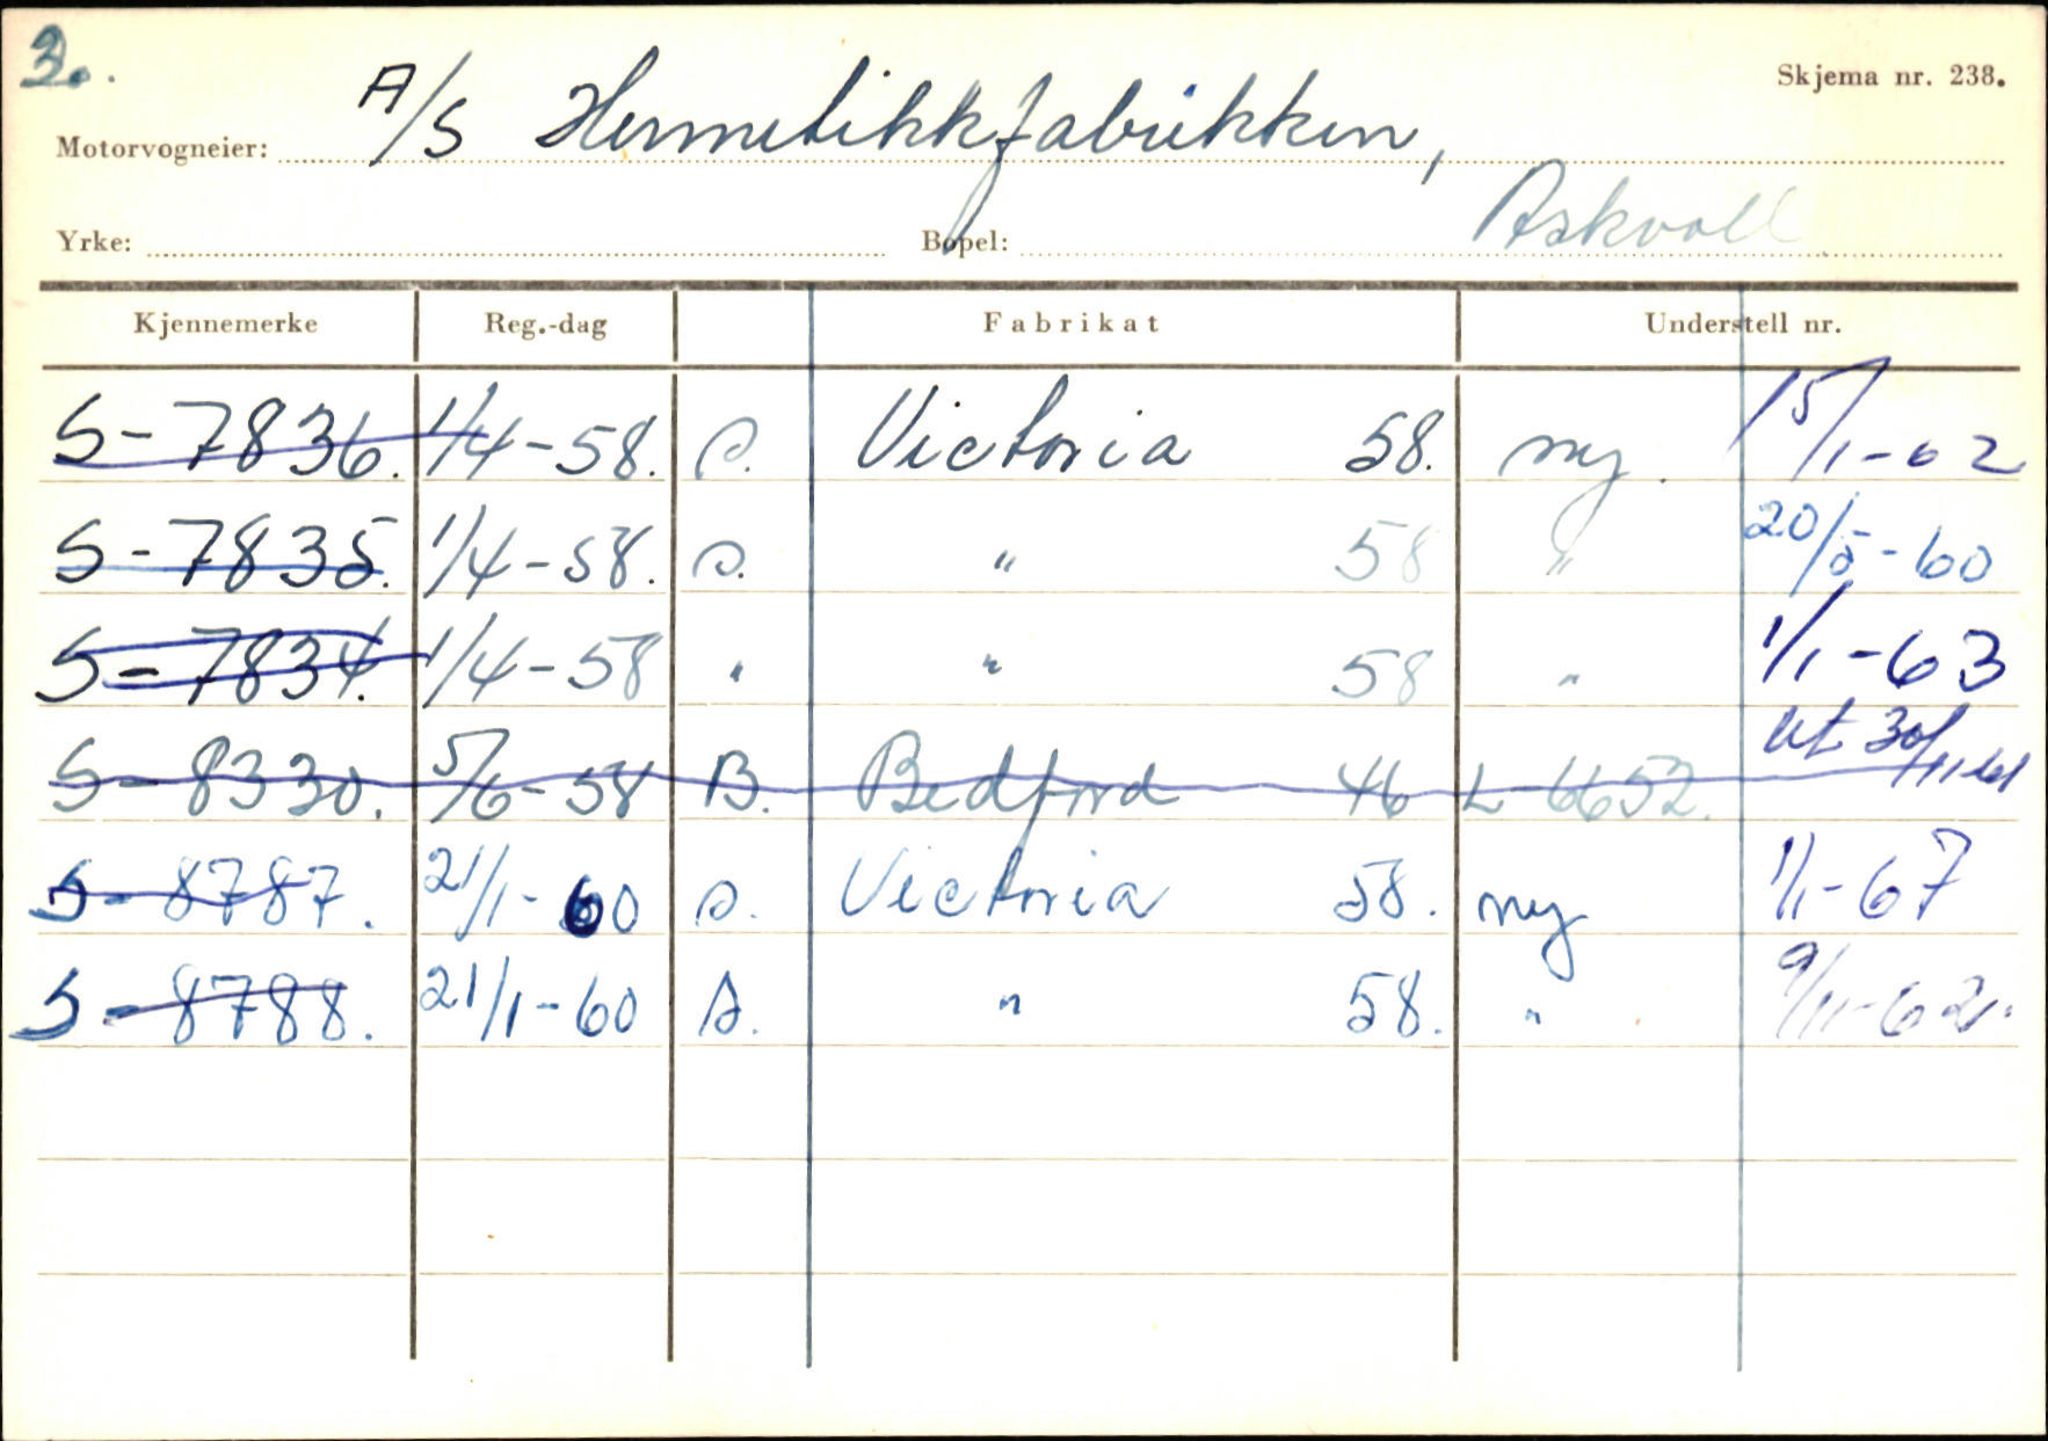 Skjema nr. 238.
Motorvogneier: A/S Hermetikkfabrikken,
Yrke: Bopel: Askvoll
Kjennemerke Reg.-dag Fabrikat Understell nr.
S-7836. 1/4-58. s. Victoria 58. ny. 15/1-62
S-7835. 1/4-58. s. " 58 " 20/5-60
S-7834. 1/4-58 " " 58 " 1/1-63
S-8330. 5/6-58 B. Bedford 46 L 6652. Ut 30/11-61
S-8787. 21/1-60 s. Victoria 58. ny 1/1-67
S-8788. 21/1-60 s. " 58. " 9/11-62.